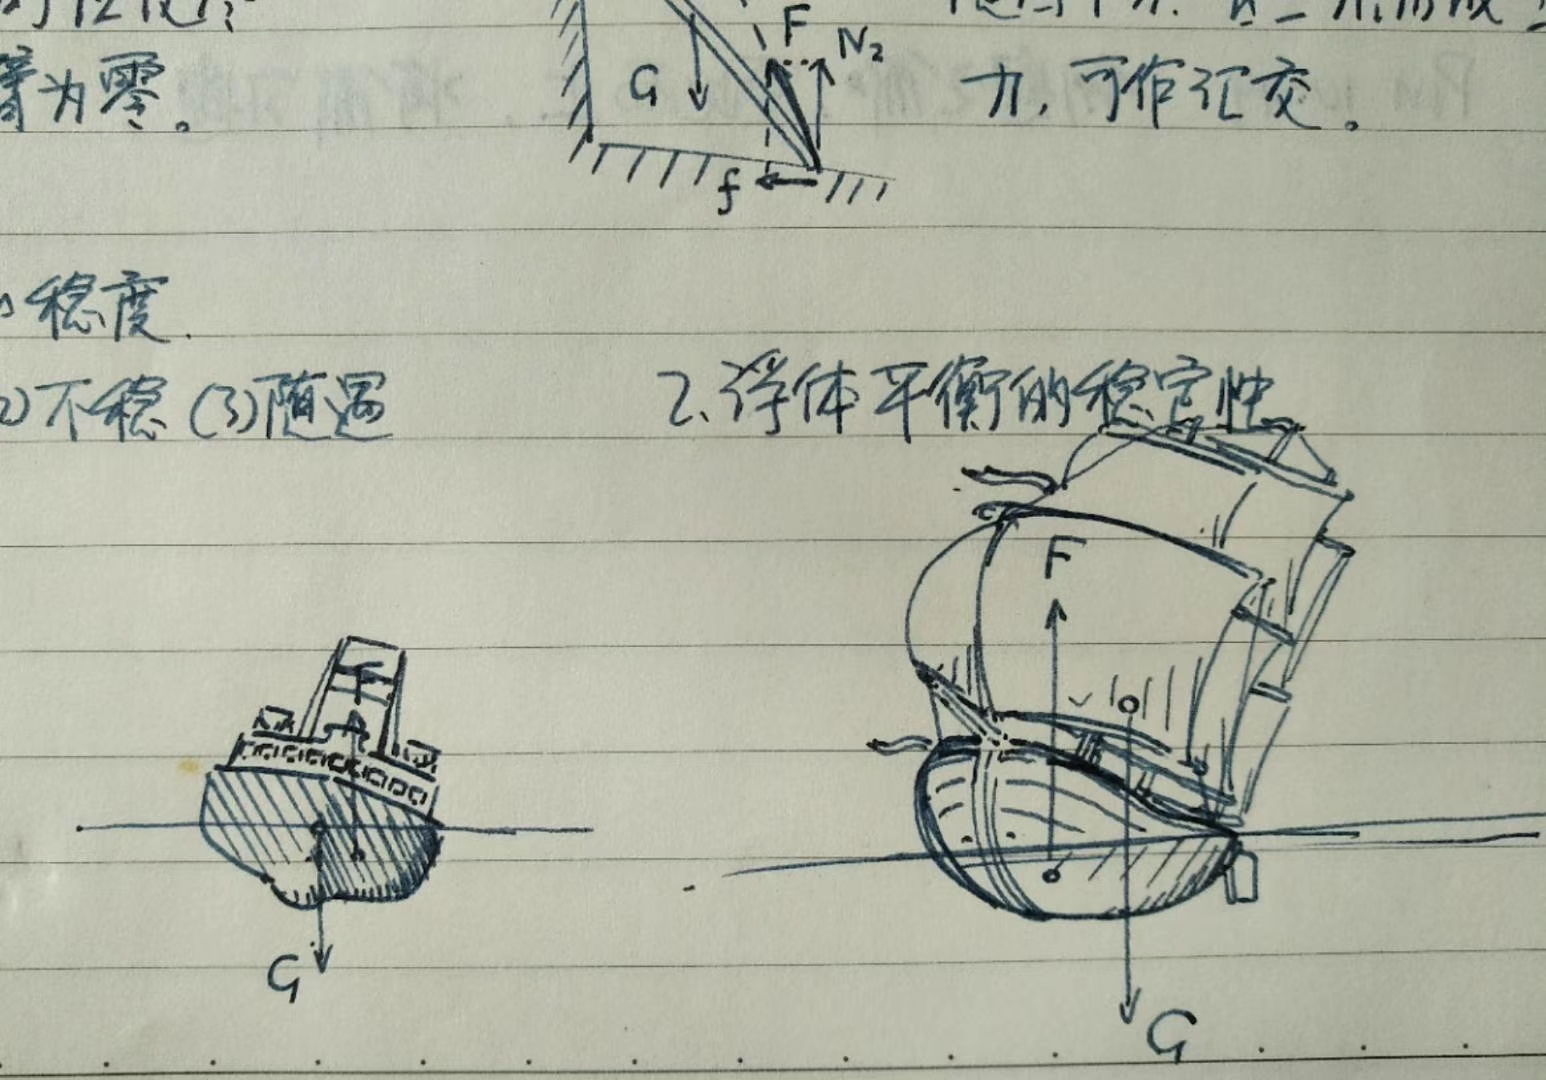 等为零。
G
F
N₂
f
力,可作汇交。
稳度.
(2)不稳 (3)随遇
2、浮体平衡的稳定性
F
G
F
G